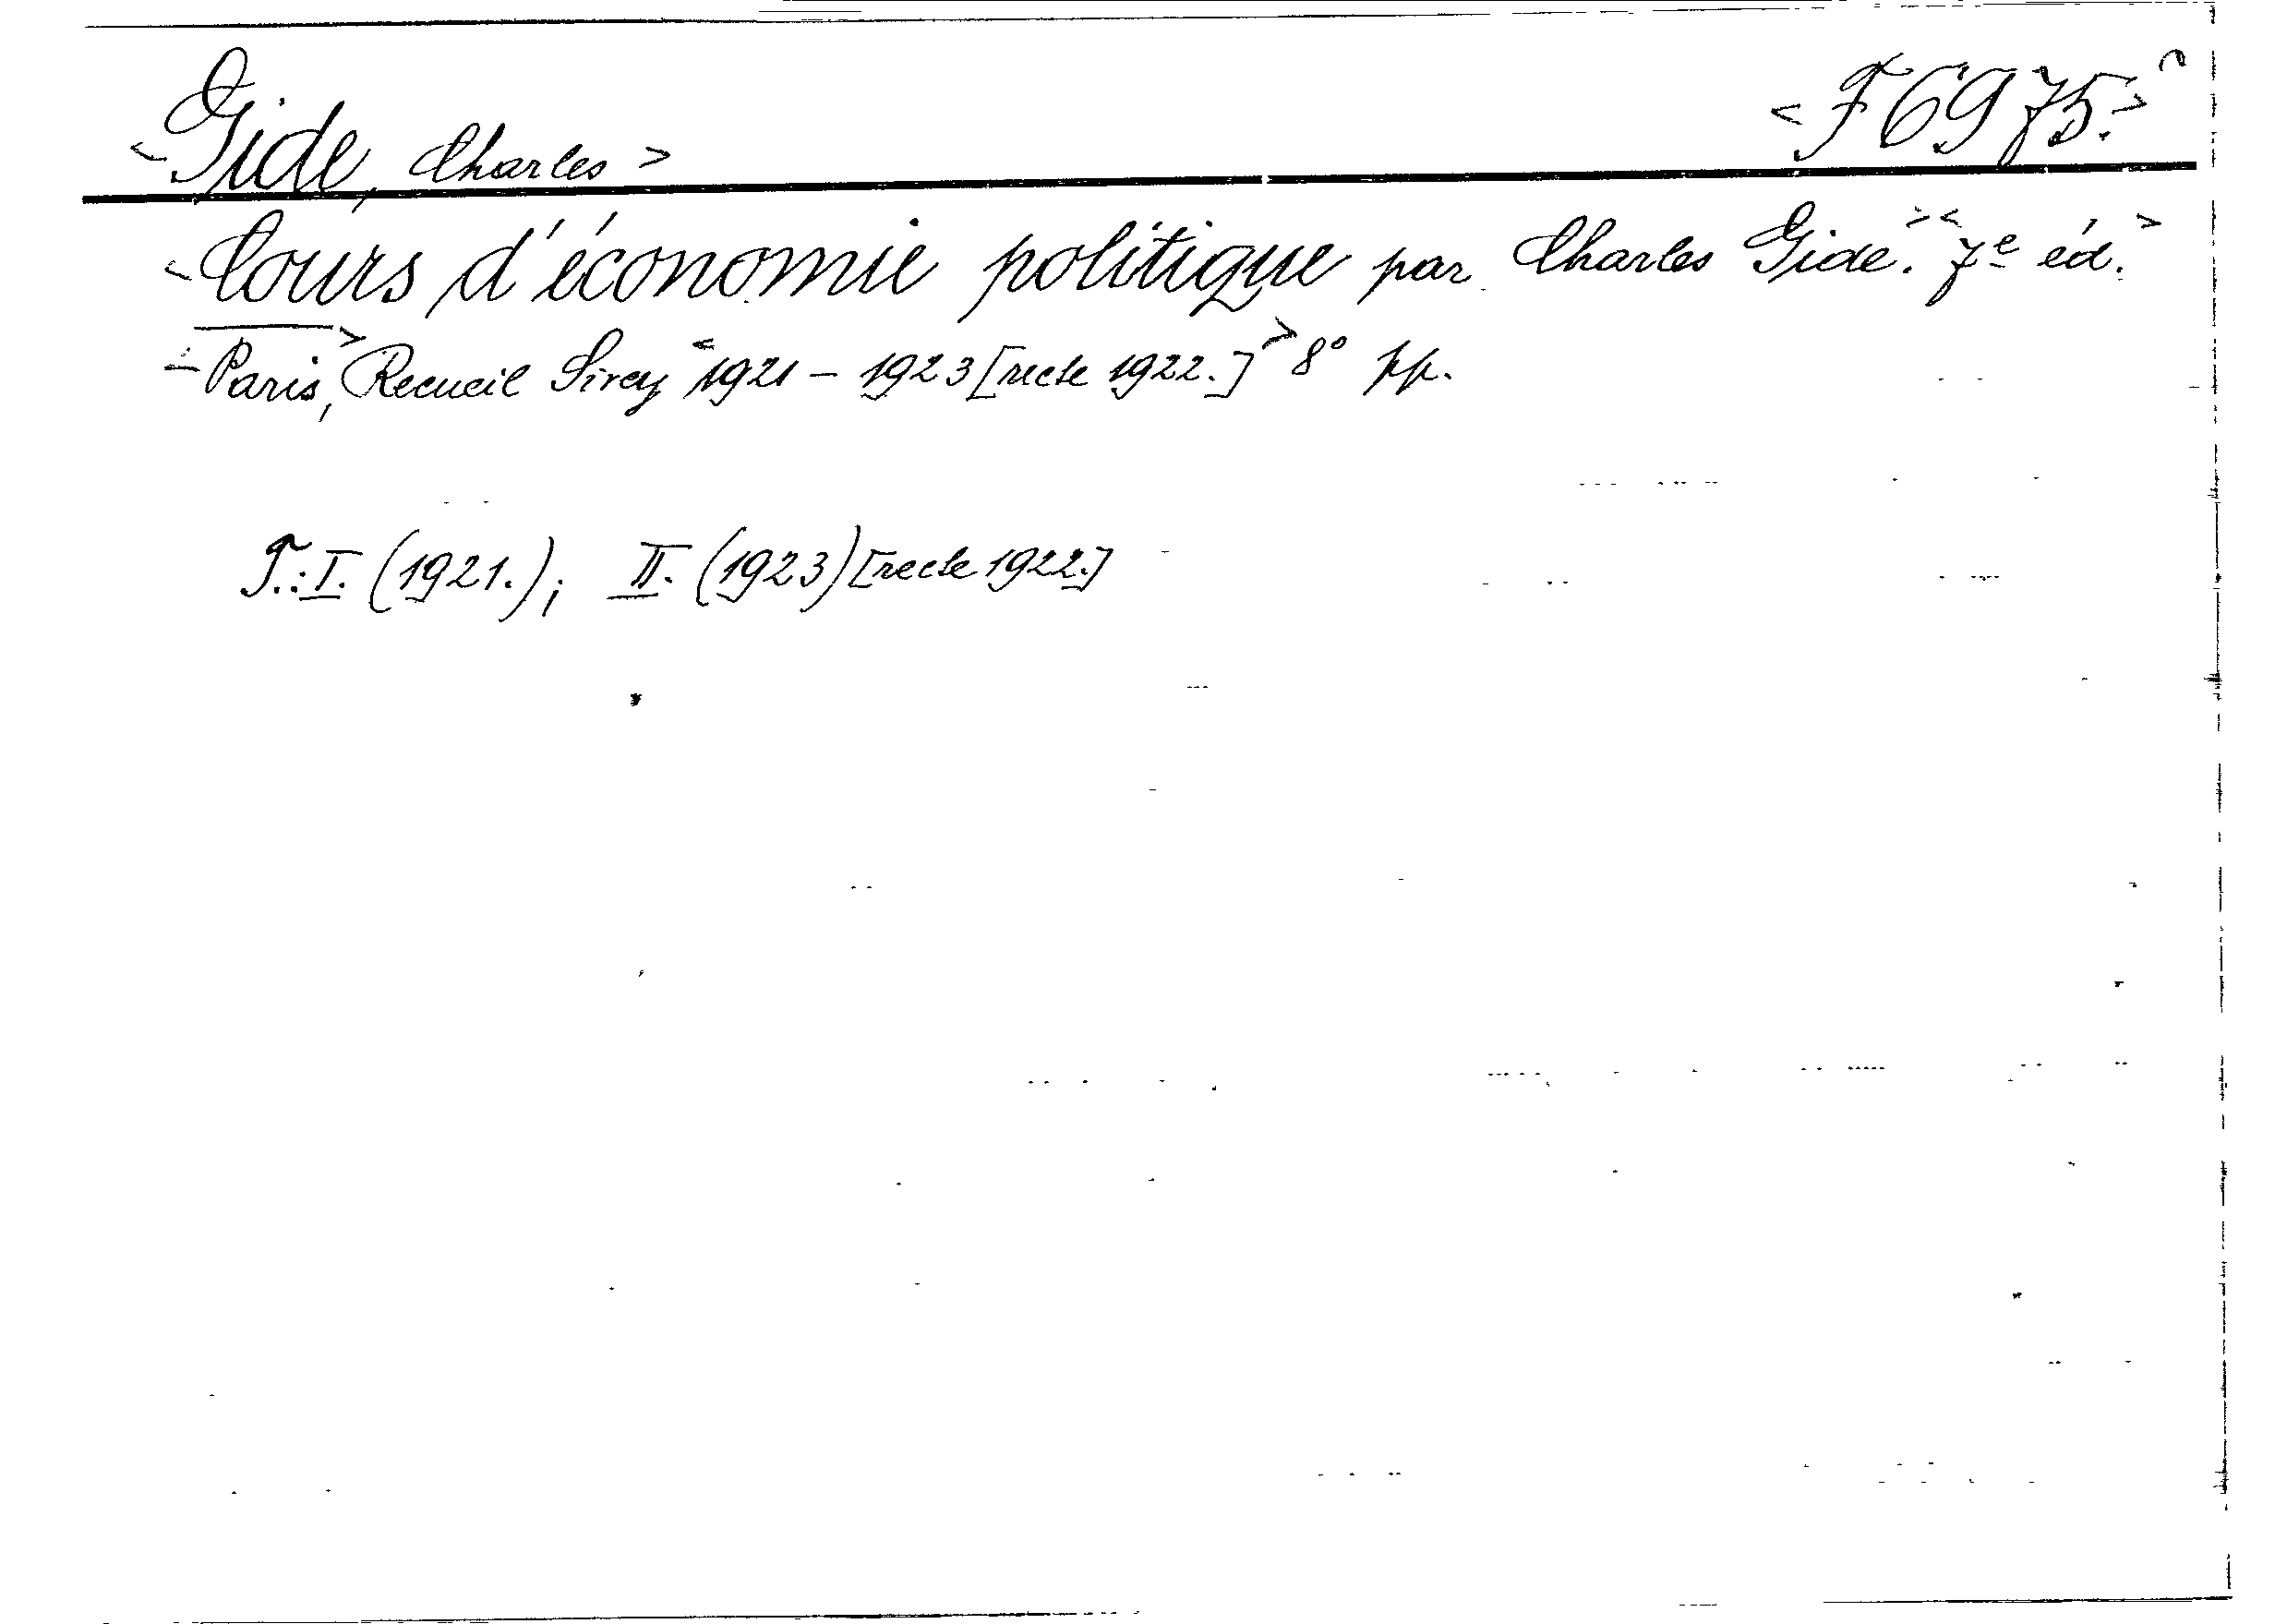 <Gide, Charles> <F 6975.>
<Cours d'économie politique par Charles Gide.><7e éd.>
<Paris,> Recueil Sirey <1921 - 1923 [recte 1922.]> 8° pp.
T.: I. (1921.); II. (1923) [recte 1922.]